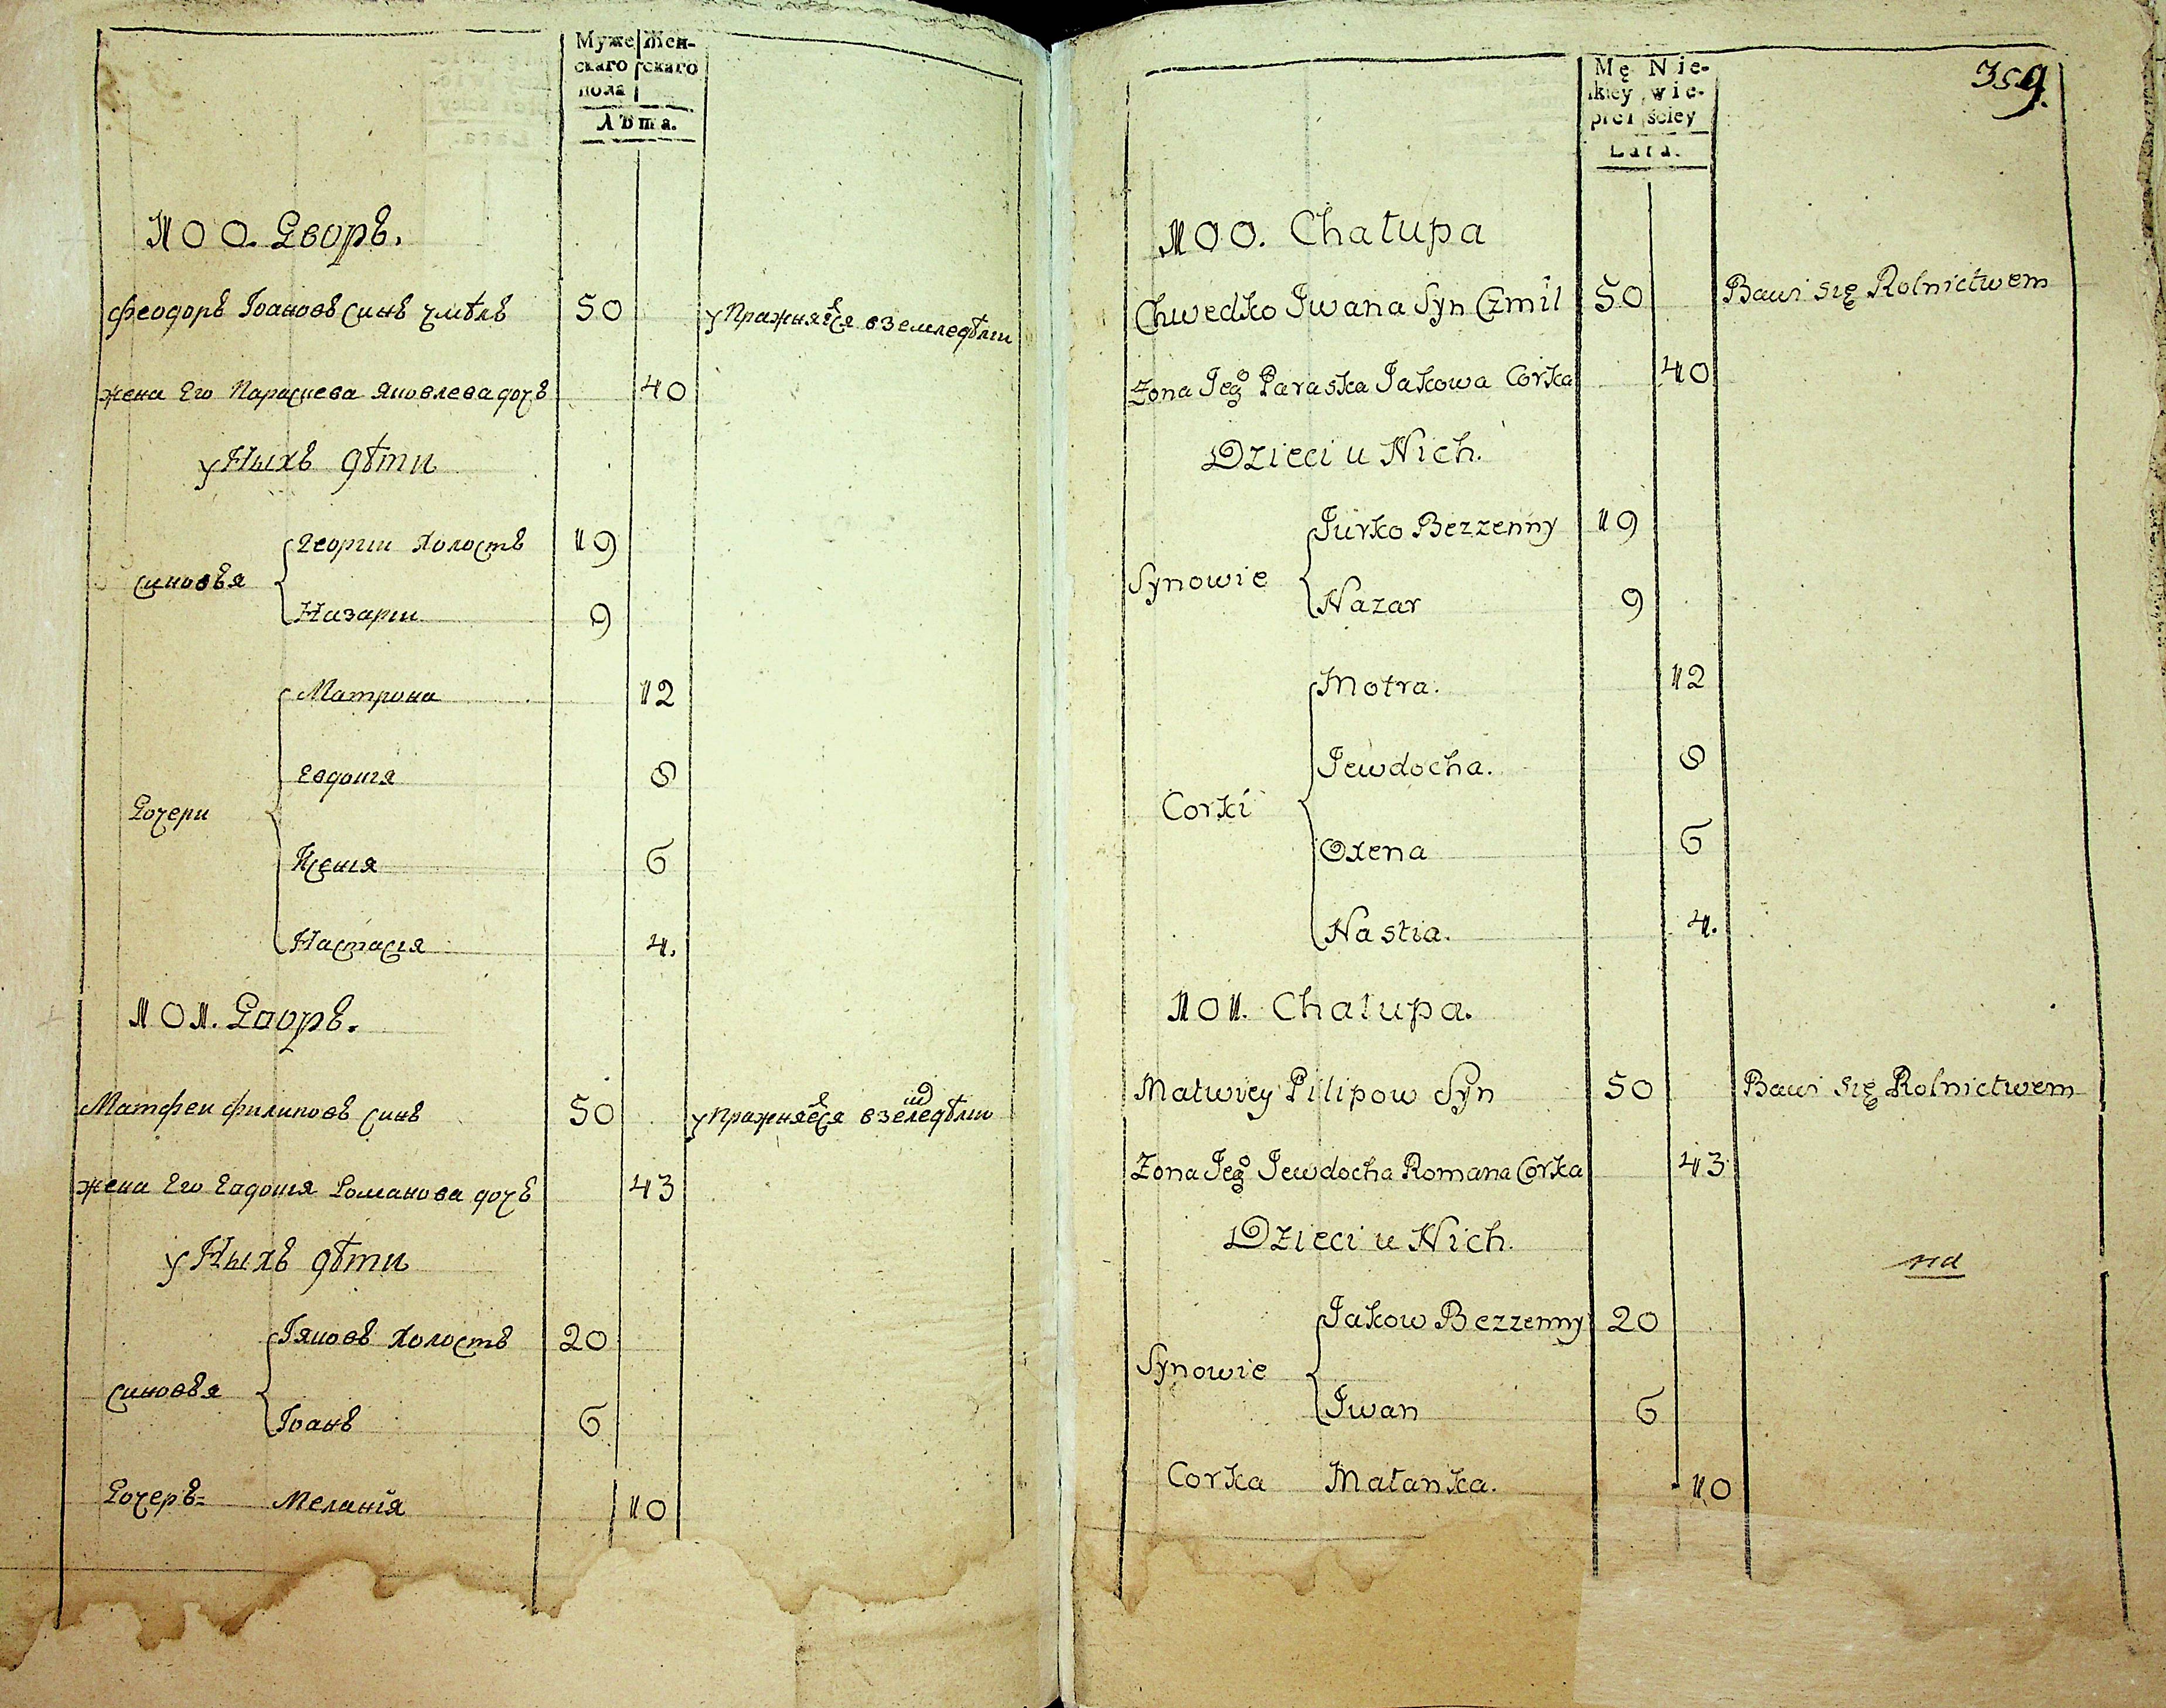 Муже|Жен-
скаго |скаго
пола |
Лѣта.
100. Дворъ.
Феодоръ Іоановъ синъ Чмѣлъ 50 упражняеся в земледѣлии
жена Его Параскева Яковлева дочъ 40
у Ныхъ дѣти
синовъя
Георгии холостъ 19
Назарии 9
Дочери
Матрона 12
Евдокия 8
Ксения 6
Настасия 4.
101. Дворъ.
Матфеи Филиповъ синъ 50 упражняеся в зеледѣлии
жена Его Евдокия Романова дочъ 43
у Ныхъ дѣти
синовъя
Іяковъ холостъ 20
Іоанъ 6
Дочеръ= Меланія 10
359.
Mę Nie-
skiey wie-
płci ściey
Lata.
100. Chałupa
Chwedko Jwana Syn Czmil 50 Bawi się Rolnictwem
Zona Jego Paraska Jakowa Corka 40
Dzieci u Nich.
Synowie
Jurko Bezzenny 19
Nazar 9
Corki
Motra. 12
Jewdocha. 8
Oxena 6
Nastia. 4.
101. Chałupa.
Matwiey Pilipow Syn 50 Bawi się Rolnictwem
Zona Jego Jewdocha Romana Corka 43
Dzieci u Nich.
Synowie
Jakow Bezzenny 20
Jwan 6
Corka Małanka. 10